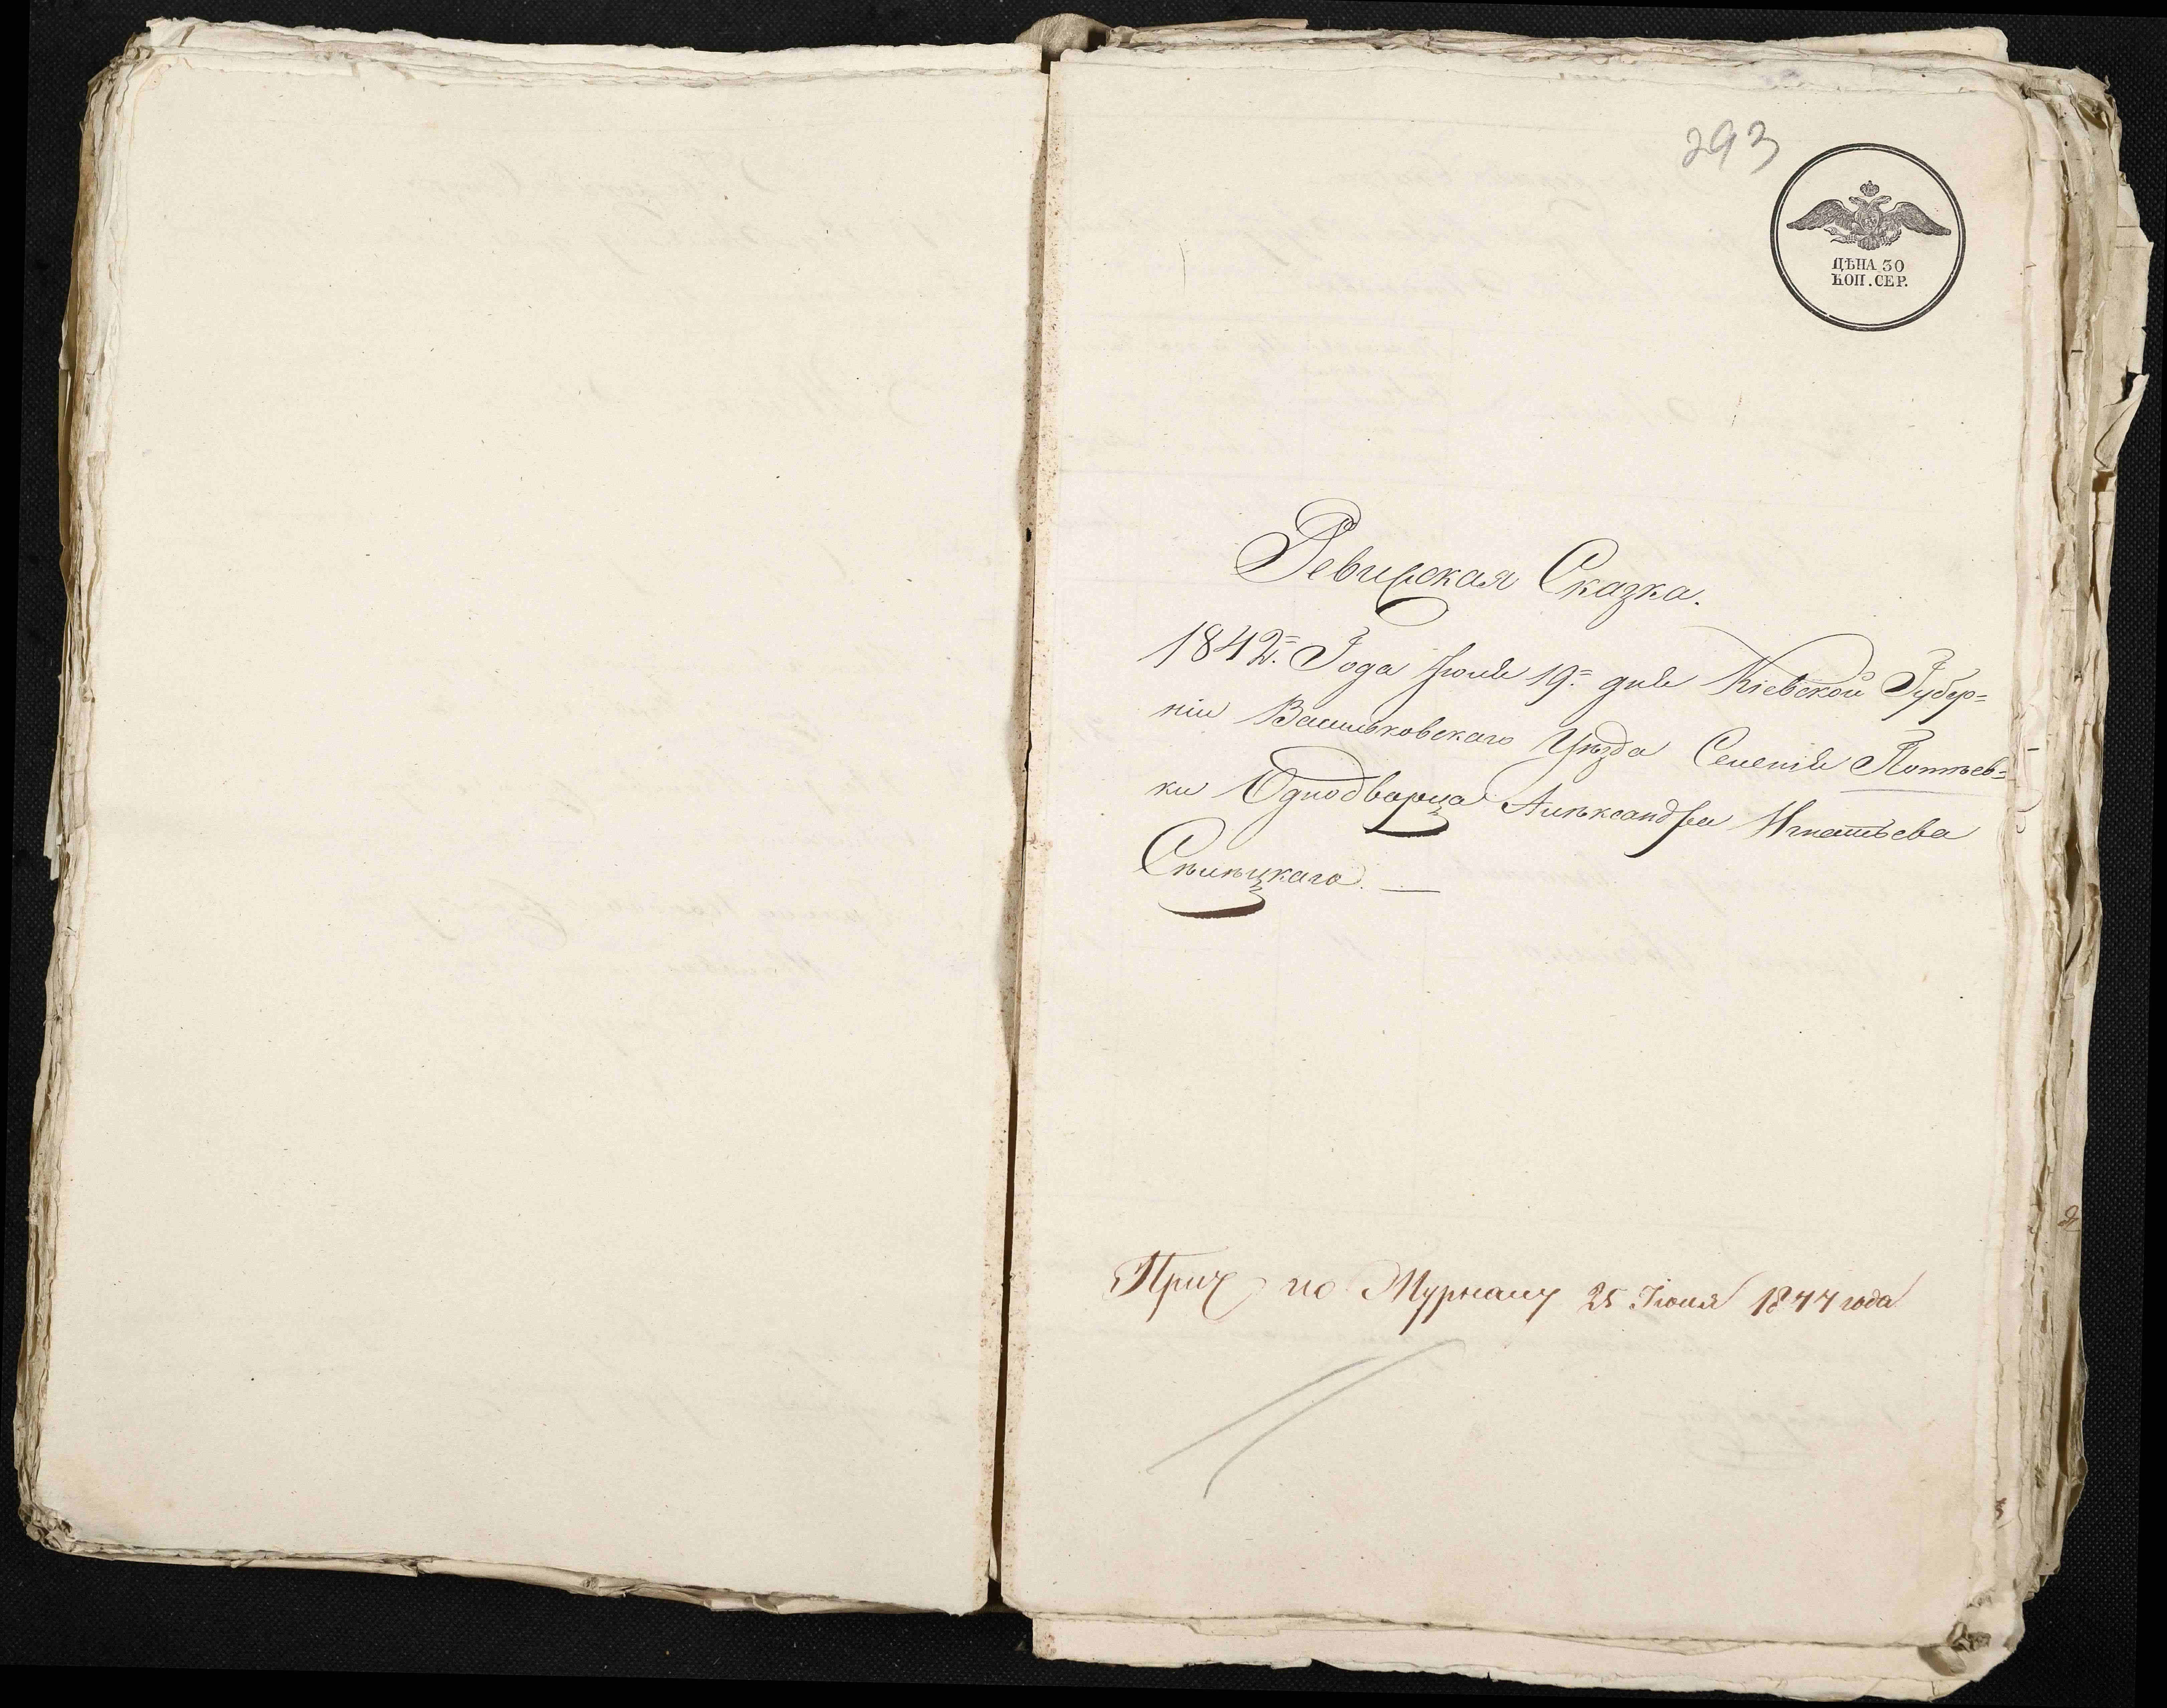 293
ЦѢНА 30
КОП. СЕР.
Ревизская Сказка.
1842. Года Іюля 19. дня Кіевской Губер=
ніи Васильковскаго Уѣзда Селенія Потѣев=
ки Однодворца Алѣксандра Игнатьева
Сѣлѣцкаго. —
по Журналу 25 Іюня 1844 года